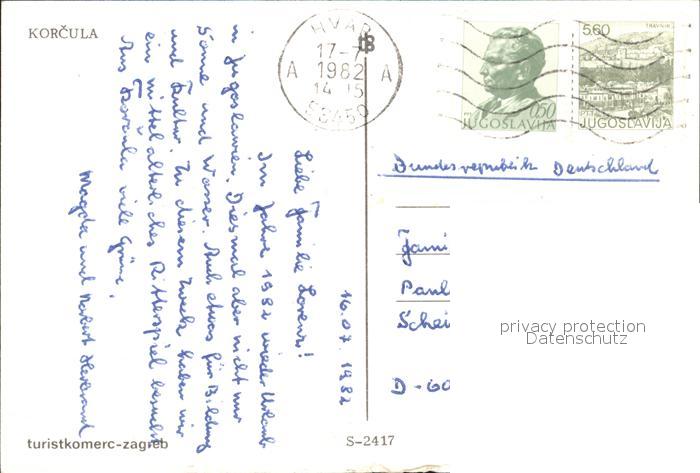 KORČULA
HVAR
17-7
A 1982 A
14 15
58450
5.60
TRAVNIK
0.50
JUGOSLAVIJA
JUGOSLAVIJA
Bundesrepublik Deutschland
16.07.1982
Liebe Familie Lorenz!
Im Jahre 1982 wieder Urlaub
in Jugoslawien. Diesmal aber nicht nur
Sonne und Wasser. Auch etwas für Bildung
und Kultur. Zu diesem Zweck haben wir
ein mittelalterliches Ritterspiel besucht
Aus Korčula viele Grüße,
Magda und Norbert
Fami
Paul
Schei
D-60
privacy protection
Datenschutz
turistkomerc-zagreb
S-2417